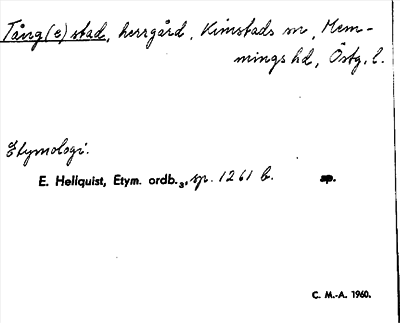 Tång(e)stad, herrgård, Kimstads sn, Mem-
mings hd, Östg. l.
Etymologi.
E. Hellquist, Etym. ordb.₃, sp. 1261 b. sp.
C. M.-A. 1960.